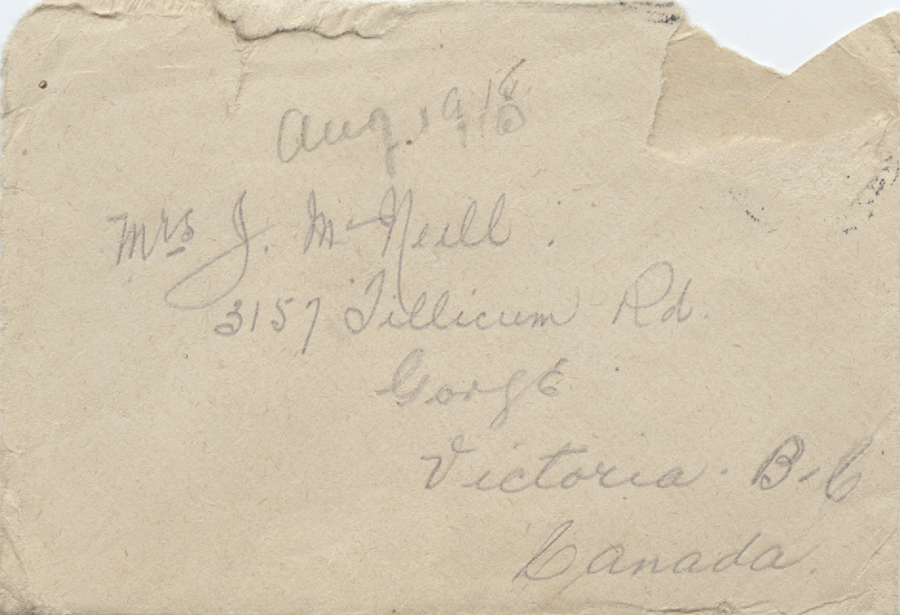 Aug. 1918
Mrs J. McNeill.
3157 Tillicum Rd.
Gorge
Victoria. B.C
Canada.